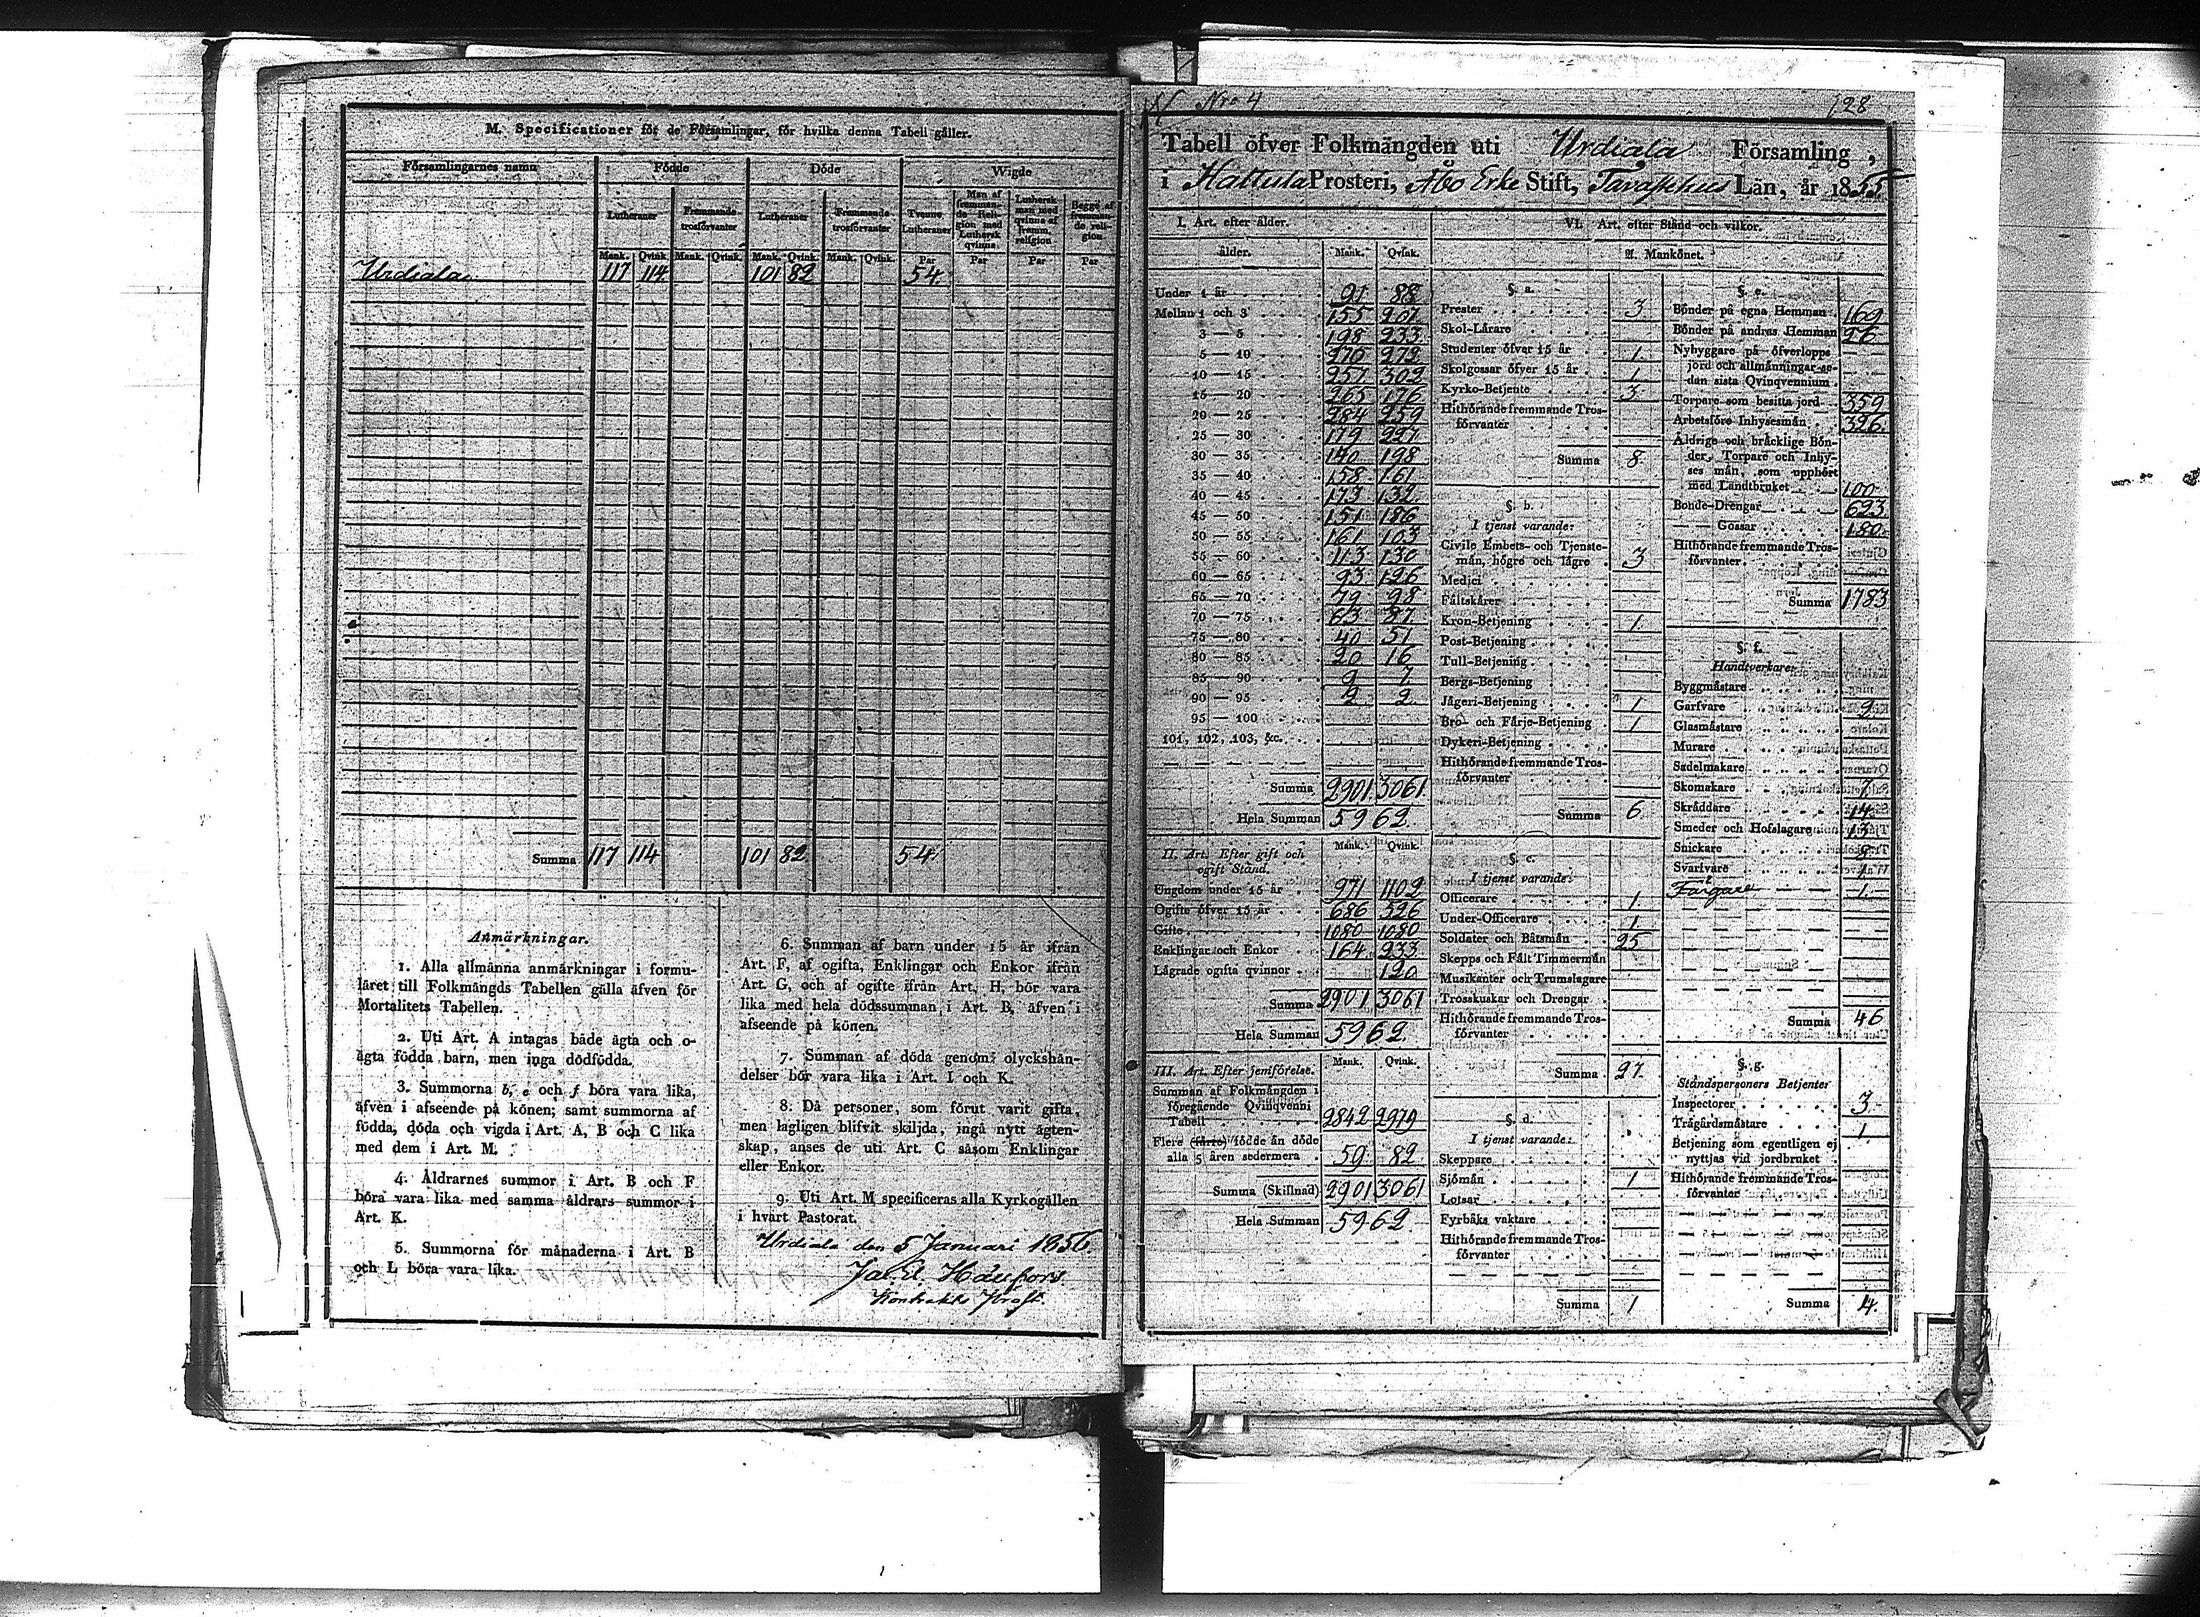 M. Specificationer för de Församlingar, för hvilka denna Tabell gäller.
Församlingarnes namn Födde Döde Wigde
Lutheraner Fremmande trosförvanter Lutheraner Fremmande trosförvanter Tvenne Lutheraner Man af fremmande Religion med Luthersk qvinna Luthersk man med qvinna af fremm. religion Begge af fremmande religion
Mank. Qvink. Mank. Qvink. Mank. Qvink. Mank. Qvink. Par Par Par Par
Urdiala 117 114 101 82 54
Summa 117 114 101 82 54
Anmärkningar.
1. Alla allmänna anmärkningar i formu-
läret till Folkmängds Tabellen gälla äfven för
Mortalitets Tabellen.
2. Uti Art. A intagas både ägta och o-
ägta födda barn, men inga dödfödda.
3. Summorna b, e och f böra vara lika,
äfven i afseende på könen; samt summorna af
födda, döda och vigda i Art. A, B och C lika
med dem i Art. M.
4. Åldrarnes summor i Art. B och F
böra vara lika med samma åldrars summor i
Art. K.
5. Summorna för månaderna i Art. B
och L böra vara lika.
6. Summan af barn under 15 år ifrån
Art. F, af ogifta, Enklingar och Enkor ifrån
Art. G, och af ogifte ifrån Art. H, bör vara
lika med hela dödssumman i Art. B, äfven i
afseende på könen.
7. Summan af döda genom olyckshän-
delser bör vara lika i Art. I och K.
8. Då personer, som förut varit gifta,
men lagligen blifvit skiljda, ingå nytt ägten-
skap, anses de uti Art. C såsom Enklingar
eller Enkor.
9. Uti Art. M specificeras alla Kyrkogällen
i hvart Pastorat.
Urdiala den 5 Januari 1856
Kontrakts Prost.
Nro 4
128
Tabell öfver Folkmängden uti Urdiala Församling,
i Hattula Prosteri, Åbo Erke Stift, Tavastehus Län, år 1855
I. Art. efter ålder.
ålder. Mank. Qvink.
Under 1 år 91 88
Mellan 1 och 3 155 207
3 — 5 198 233
5 — 10 270 272
10 — 15 257 302
15 — 20 265 176
20 — 25 284 259
25 — 30 179 227
30 — 35 140 198
35 — 40 158 161
40 — 45 173 132
45 — 50 151 186
50 — 55 161 103
55 — 60 113 130
60 — 65 93 126
65 — 70 79 98
70 — 75 63 87
75 — 80 40 51
80 — 85 20 16
85 — 90 9 7
90 — 95 2 2
95 — 100
101, 102, 103, &c.
Summa 2901 3061
Hela Summan 5962
II. Art. Efter gift och
ogift Stånd. Mank. Qvink.
Ungdom under 15 år 971 1102
Ogifte öfver 15 år 686 526
Gifte 1080 1080
Enklingar och Enkor 164 233
Lägrade ogifta qvinnor 120
Summa 2901 3061
Hela Summan 5962
III. Art. Efter jemförelse. Mank. Qvink.
Summan af Folkmängden i
föregående Qvinqvenni
Tabell 2842 2979
Flere (färre) födde än döde
alla 5 åren sedermera 59 82
Summa (Skillnad) 2901 3061
Hela Summan 5962
VI. Art. efter Stånd och vilkor.
A. Mankönet.
§. a.
Prester 3
Skol-Lärare
Studenter öfver 15 år 1
Skolgossar öfver 15 år 1
Kyrko-Betjente 3
Hithörande fremmande Tros-
förvanter
Summa 8
§. b.
I tjenst varande:
Civile Embets- och Tjenste-
män, högre och lägre 3
Medici
Fältskärer
Kron-Betjening 1
Post-Betjening
Tull-Betjening
Bergs-Betjening
Jägeri-Betjening 1
Bro- och Färje-Betjening 1
Dykeri-Betjening
Hithörande fremmande Tros-
förvanter
Summa 6
§. c.
I tjenst varande:
Officerare 1
Under-Officerare 1
Soldater och Båtsmän 25
Skepps och Fält Timmermän
Musikanter och Trumslagare
Trosskuskar och Drengar
Hithörande fremmande Tros-
förvanter
Summa 27
§. d.
I tjenst varande:
Skeppare
Sjömän 1
Lotsar
Fyrbåks vaktare
Hithörande fremmande Tros-
förvanter
Summa 1
§. e.
Bönder på egna Hemman 169
Bönder på andras Hemman 26
Nybyggare på öfverlopps
jord och allmänningar se-
dan sista Qvinqvennium
Torpare som besitta jord 359
Arbetsföre Inhysesmän 326
Åldrige och bräcklige Bön-
der, Torpare och Inhy-
ses män, som upphört
med Landtbruket 100
Bonde-Drengar 623
— Gossar 180
Hithörande fremmande Tros-
förvanter
Summa 1783
§. f.
Handtverkare:
Byggmästare
Garfvare 2
Glasmästare
Murare
Sadelmakare
Skomakare 7
Skräddare 14
Smeder och Hofslagare 13
Snickare 8
Svarfvare 1
Färgare 1
Summa 46
§. g.
Ståndspersoners Betjenter
Inspectorer 3
Trägårdsmästare 1
Betjening som egentligen ej
nyttjas vid jordbruket
Hithörande fremmande Tros-
förvanter
Summa 4